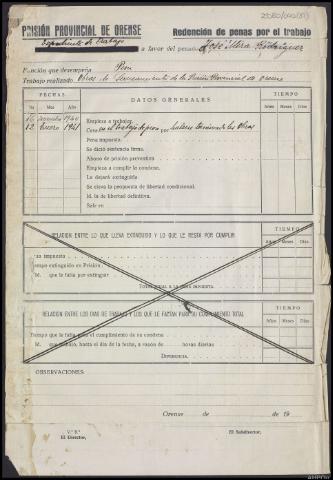 PRISIÓN PROVINCIAL DE ORENSE
Redención de penas por el trabajo
Expediente de trabajo
a favor del penado José Mira Rodríguez
Función que desempeña Peón
Trabajo realizado Obras de de la Prisión Provincial de Orense
FECHAS
DATOS GENERALES
TIEMPO
Día Mes Año
Años Meses Días
1940 Empieza a trabajar.
12 Enero 1941 Cesa en el trabajo de peón por haberse terminado las Obras
Pena impuesta.
Se dictó sentencia firme.
Abono de prisión preventiva
Empieza a cumplir la condena.
La dejará extinguida
Se eleva la propuesta de libertad condicional.
Id. la de libertad definitiva.
Sale en
RELACION ENTRE LO QUE LLEVA EXTINGUIDO Y LO QUE LE RESTA POR CUMPLIR
TIEMPO
Años Meses Días
Tiempo extinguido en Prisión.
Id. que le falta por extinguir
RELACION ENTRE LOS DIAS DE TRABAJO Y LOS QUE LE FALTAN PARA SU CUMPLIMIENTO TOTAL
TIEMPO
Años Meses Días
Tiempo que le falta para el cumplimiento de su condena
Id. que trabajó, hasta el día de la fecha, a razón de horas diarias
DIFERENCIA.
OBSERVACIONES:
Orense de de 19
V.º B.º
El Director,
El Subdirector.